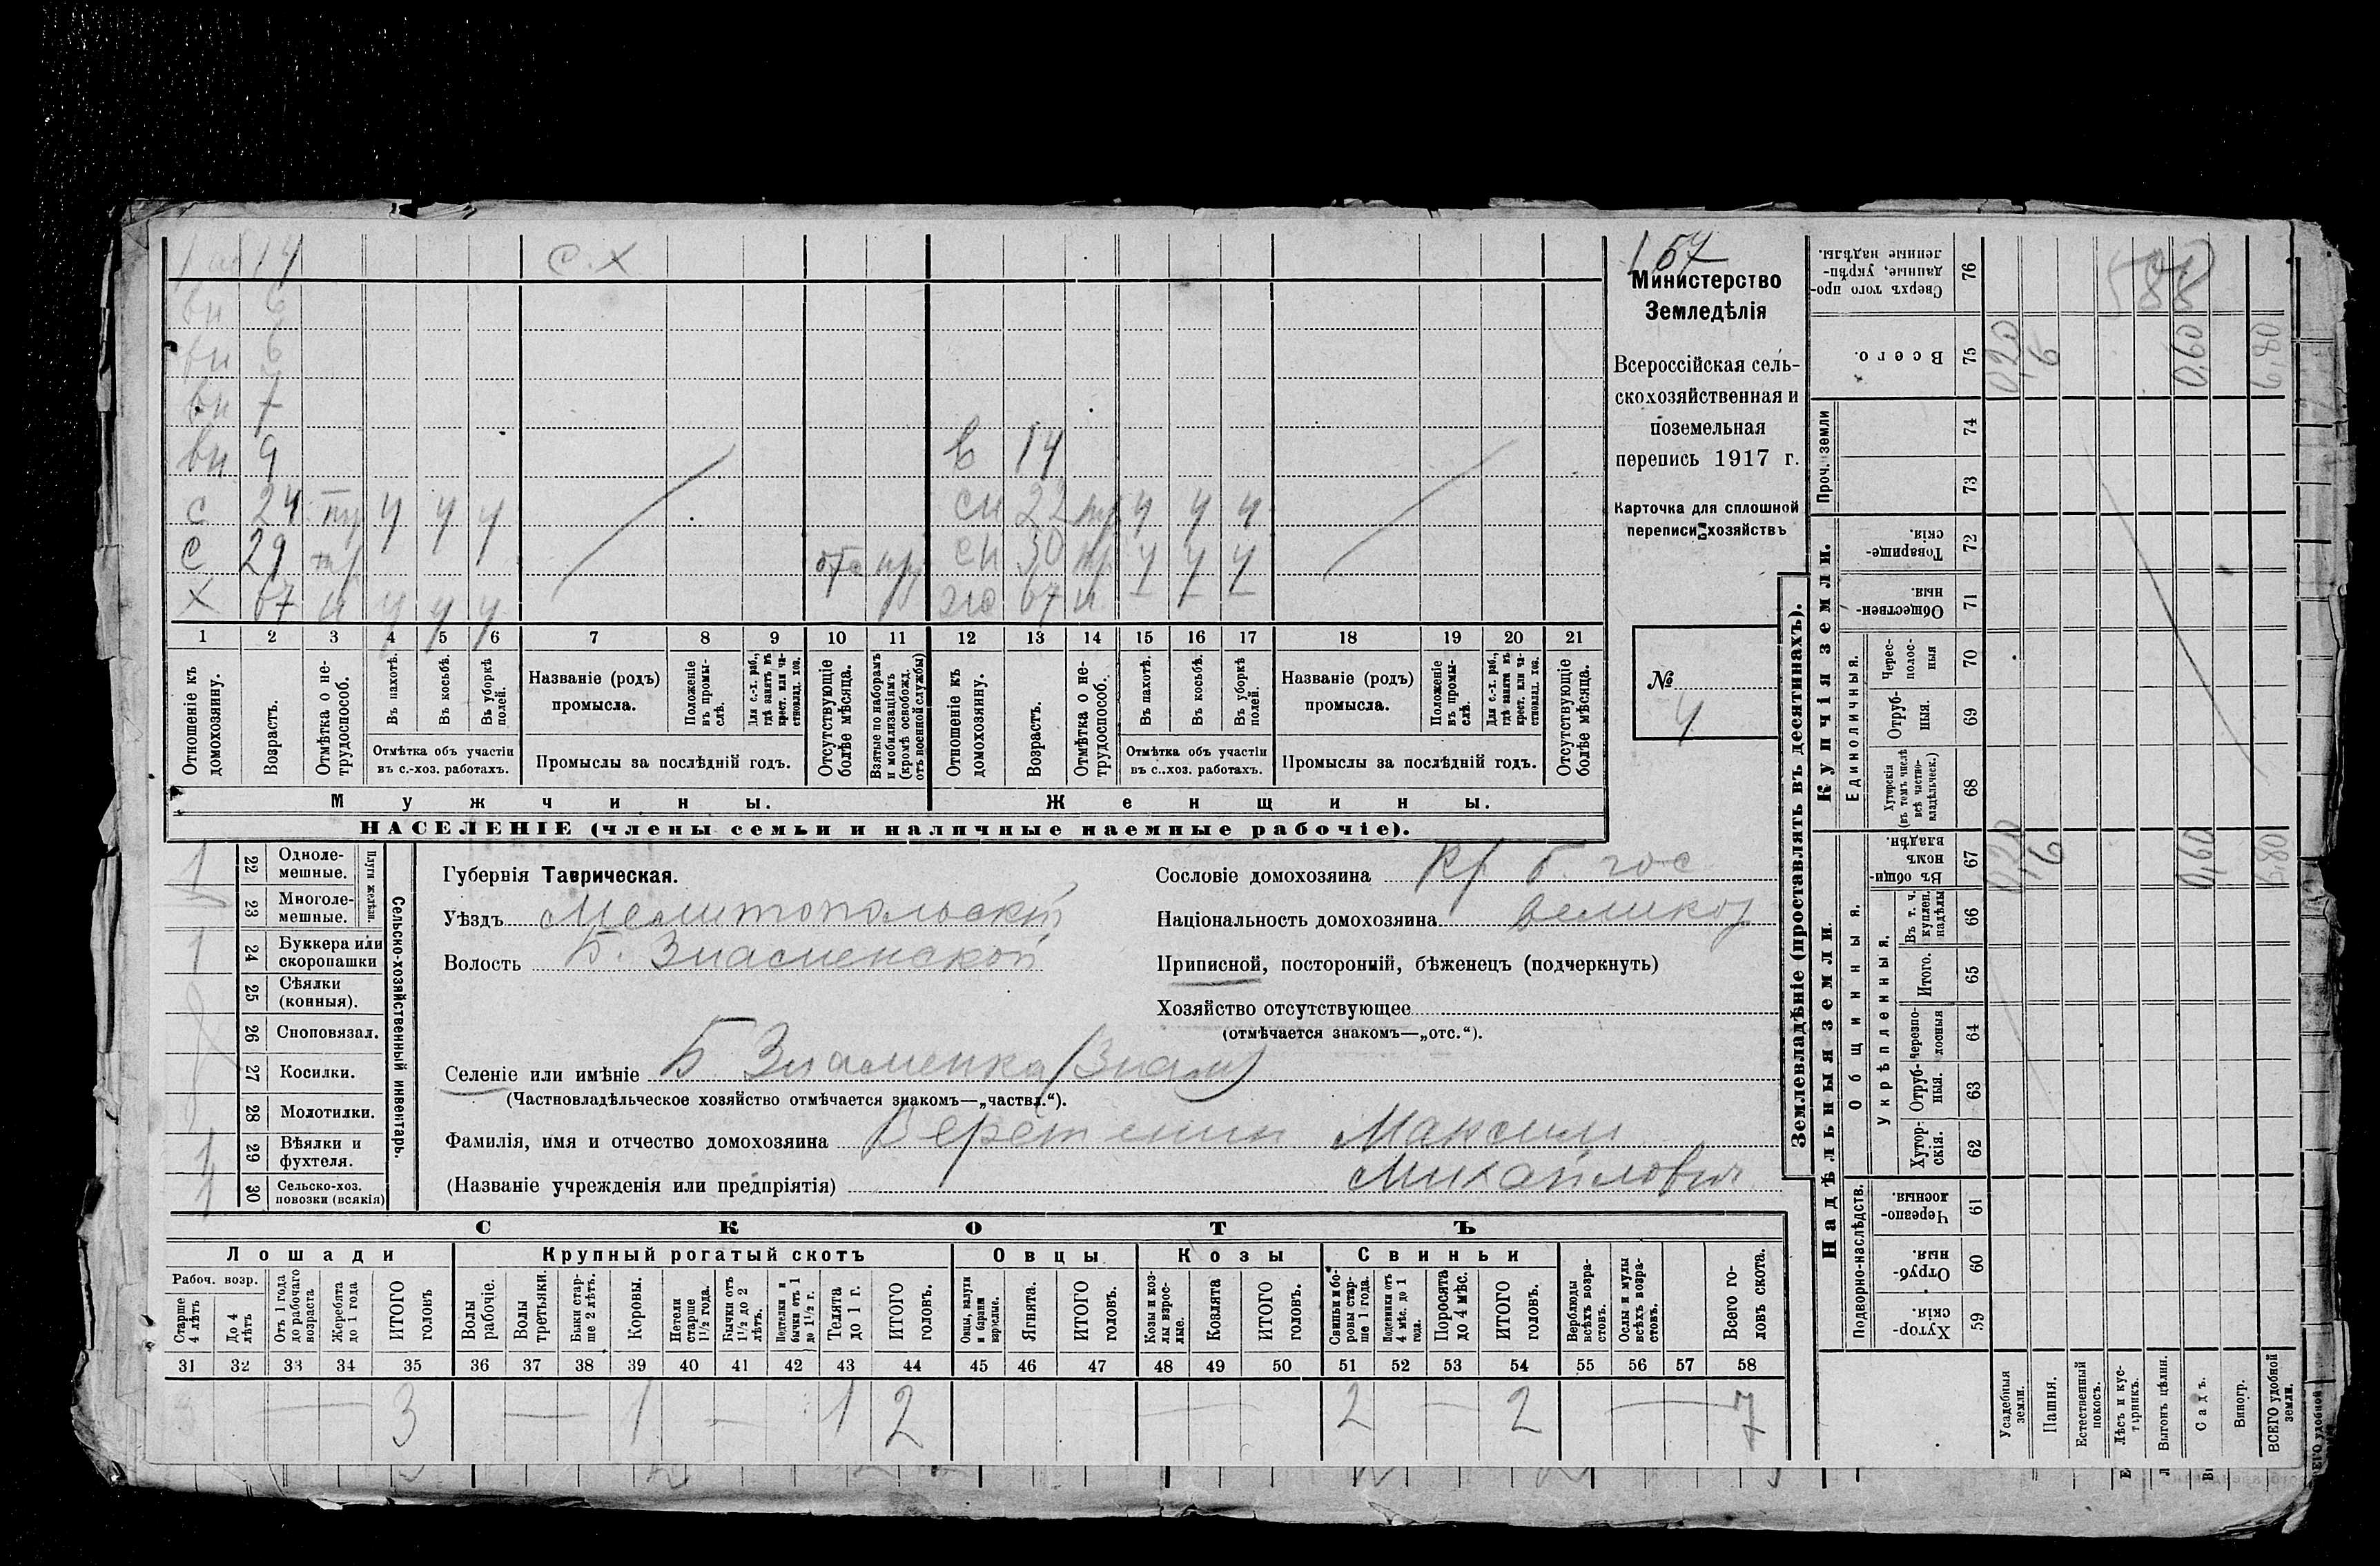 1 14 с.х
вн 6
вн 6
вн 7
вн 9 в 14
с 24 тр у у у сн 22 тр у у у
с 29 тр отс сн 30 тр у у у
х 67 и у у у 67 и
1 2 3 4 5 6 7 8 9 10 11 12 13 14 15 16 17 18 19 20 21
Отношеніе къ домохозяину.
Возрастъ.
Отмѣтка о не-трудоспособ.
Въ пахотѣ.
Въ косьбѣ.
Въ уборкѣ полей.
Отмѣтка объ участіи въ с.-хоз. работахъ.
Названіе (родъ) промысла.
Положеніе въ промы-слѣ.
Для с.-х. раб., гдѣ занятъ въ крест. или ча-стновлад. хоз.
Промыслы за послѣдній годъ.
Отсутствующіе болѣе мѣсяца.
Взятые по наборамъ и мобилизаціямъ (кромѣ освобожд. отъ военной службы)
Отношеніе къ домохозяину.
Возрастъ.
Отмѣтка о не-трудоспособ.
Въ пахотѣ.
Въ косьбѣ.
Въ уборкѣ полей.
Отмѣтка объ участіи въ с..хоз. работахъ.
Названіе (родъ) промысла.
Положеніе въ промы-слѣ.
Для с.-х. раб., гдѣ занята въ крест. или ча-стновлад. хоз.
Промыслы за послѣдній годъ.
Отсутствующіе болѣе мѣсяца.
Мужчины.
Женщины.
НАСЕЛЕНІЕ (члены семьи и наличные наемные рабочіе).
157
Министерство
Земледѣлія
Всероссійская сель-
скохозяйственная и
поземельная
перепись 1917 г.
Карточка для сплошной
переписи хозяйствъ
№
4
Плуги желѣз.
22 Одноле-мешные.
23 Многоле-мешные.
24 Буккера или скоропашки
25 Сѣялки (конныя).
26 Сноповязал.
27 Косилки.
28 Молотилки.
29 Вѣялки и фухтеля.
30 Сельско-хоз. повозки (всякія)
1
1
1
1
Сельско-хозяйственный инвентарь.
Губернія Таврическая.
Уѣздъ Мелитопольскій
Волость Б. Знаменской
Селеніе или имѣніе Б Знаменка (Знам)
(Частновладѣльческое хозяйство отмѣчается знакомъ—„частвл.“).
Фамилія, имя и отчество домохозяина Веретенин Максим
(Названіе учрежденія или предпріятія) Михайлович
Сословіе домохозяина Кр б. гос
Національность домохозяина великор
Приписной, посторонній, бѣженецъ (подчеркнуть)
Хозяйство отсутствующее
(отмѣчается знакомъ—„отс.“).
СКОТЪ
Лошади
Крупный рогатый скотъ
Овцы
Козы
Свиньи
Рабоч. возр.
Старше 4 лѣтъ
До 4 лѣтъ
Отъ 1 года до рабочаго возраста
Жеребята до 1 года
ИТОГО головъ
Волы рабочіе.
Волы третьяки.
Быки стар-ше 2 лѣтъ.
Коровы.
Нетели старше 1½ года.
Бычки отъ 1½ до 2 лѣтъ.
Нетелки и бычки отъ 1 до 1½ г.
Телята до 1 г.
ИТОГО головъ.
Овцы, валухи и бараны взрослые.
Ягнята.
ИТОГО головъ.
Козы и коз-лы взрос-лые.
Козлята
ИТОГО головъ.
Свиньи и бо-ровы стар-ше 1 года.
Подсвинки отъ 4 мѣс. до 1 года.
Поросята до 4 мѣс.
ИТОГО головъ.
Верблюды всѣхъ возра-стовъ.
Ослы и мулы всѣхъ возра-стовъ.
Всего го-ловъ скота.
31 32 33 34 35 36 37 38 39 40 41 42 43 44 45 46 47 48 49 50 51 52 53 54 55 56 57 58
— 3 — 1 — 1 2 — 2 — 2 — 7
Землевладѣніе (проставлять въ десятинахъ).
Надѣльныя земли.
Купчія земли.
Проч. земли
Подворно-наслѣдств.
Общинныя.
Укрѣпленныя.
Единоличныя.
Хутор-скія. 59
Отруб-ныя. 60
Черезпо-лосныя 61
Хутор-скія. 62
Отруб-ныя. 63
Черезпо-лосныя 64
Итого. 65
Въ т. ч. куплен. надѣлы 66
Въ общи-номъ владѣн. 67
Хуторскія (въ томъ числѣ всѣ частно-владѣльческ.) 68
Отруб-ныя. 69
Черес-полос-ныя 70
Обществен-ныя. 71
Товарище-скія. 72
73
74
Всего. 75
Сверхъ того про-данные, укрѣп-ленные надѣлы. 76
Усадебныя земли.
Пашня.
Естественный покосъ.
Лѣсъ и кус-тарникъ.
Выгонъ цѣлин.
Садъ.
Виногр.
ВСЕГО удобной земли.
0,20 6 0,60 6,80
0,20 6 0,60 6,80
588